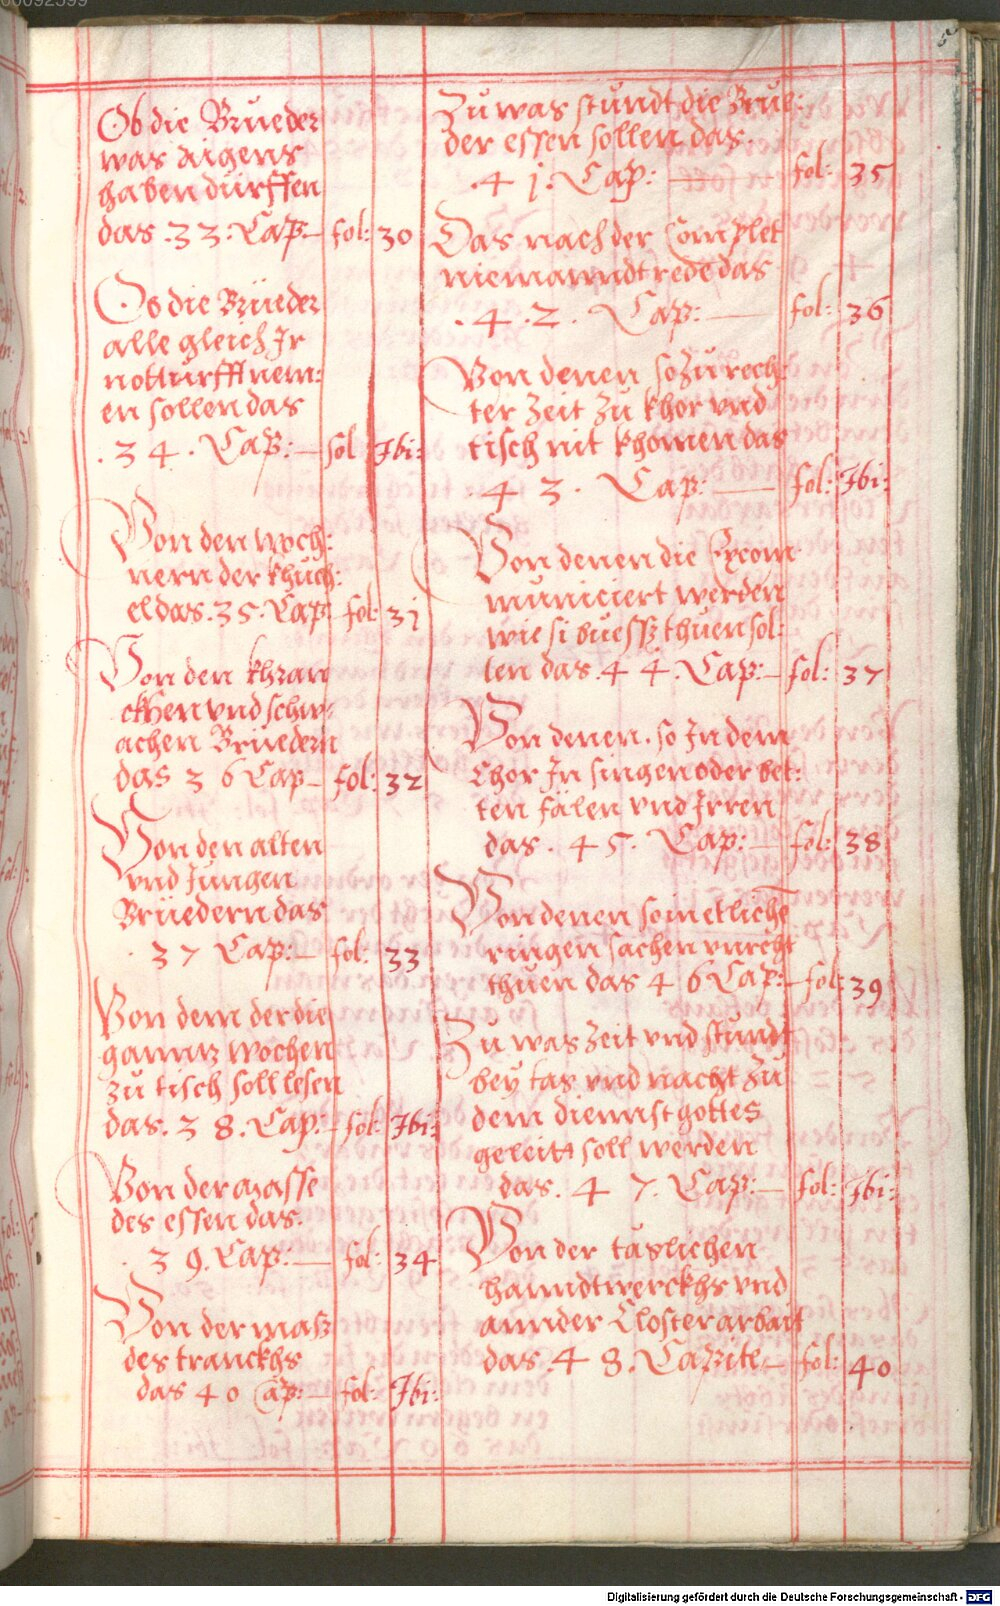 Ob die Brueder
was aigens
haben dürffen
das .33. Cap. fol: 30
Ob die Brüeder
alle gleich Jr
notturfft nem:
en sollen das
.34. Cap: fol Ibi:
Von den woch:
nern der khuch:
el das .35. Cap. fol: 31
Von den khran
ckhen vnd schw:
achen Brüedern
das 36 Cap fol: 32
Von den alten
vnd Jungen
Brüedern das
37 Cap: fol: 33
Von dem der die
ganntz wochen
zu tisch soll lesen
das .38. Cap: fol: Ibi:
Von der masse
des essen das.
39. Cap: fol: 34
Von der masz
des tranckhs
das 40 Cap: fol: Ibi:
Zu was stundt die Brüe:
der essen sollen das.
.41. Cap: fol: 35
Das nach der Complet
niemanndt rede das
.42. Cap: fol: 36
Von denen so zu rech:
ter zeit zu khor vnd
tisch nit khomen das
.43. Cap: fol: Ibi:
Von denen die Excom
municiert werden
wie si buessz thuen sol:
len das .44. Cap: fol: 37
Von denen so Jn dem
Chor Jn singen oder bet:
ten fälen vnd Jrren
das .45. Cap: fol: 38
Von denen so in etliche
ringen sachen vnrecht
thuen das 46 Cap: fol: 39
Zu was zeit vnd stundt
bey tag vnd nacht zu
dem diennst gottes
geleitt soll werden
das .47. Cap: fol: Ibi:
Von der täglichen
hanndtwerckhs vnd
annder Closter arbait
das .48. Capitl fol: 40
Digitalisierung gefördert durch die Deutsche Forschungsgemeinschaft - DFG